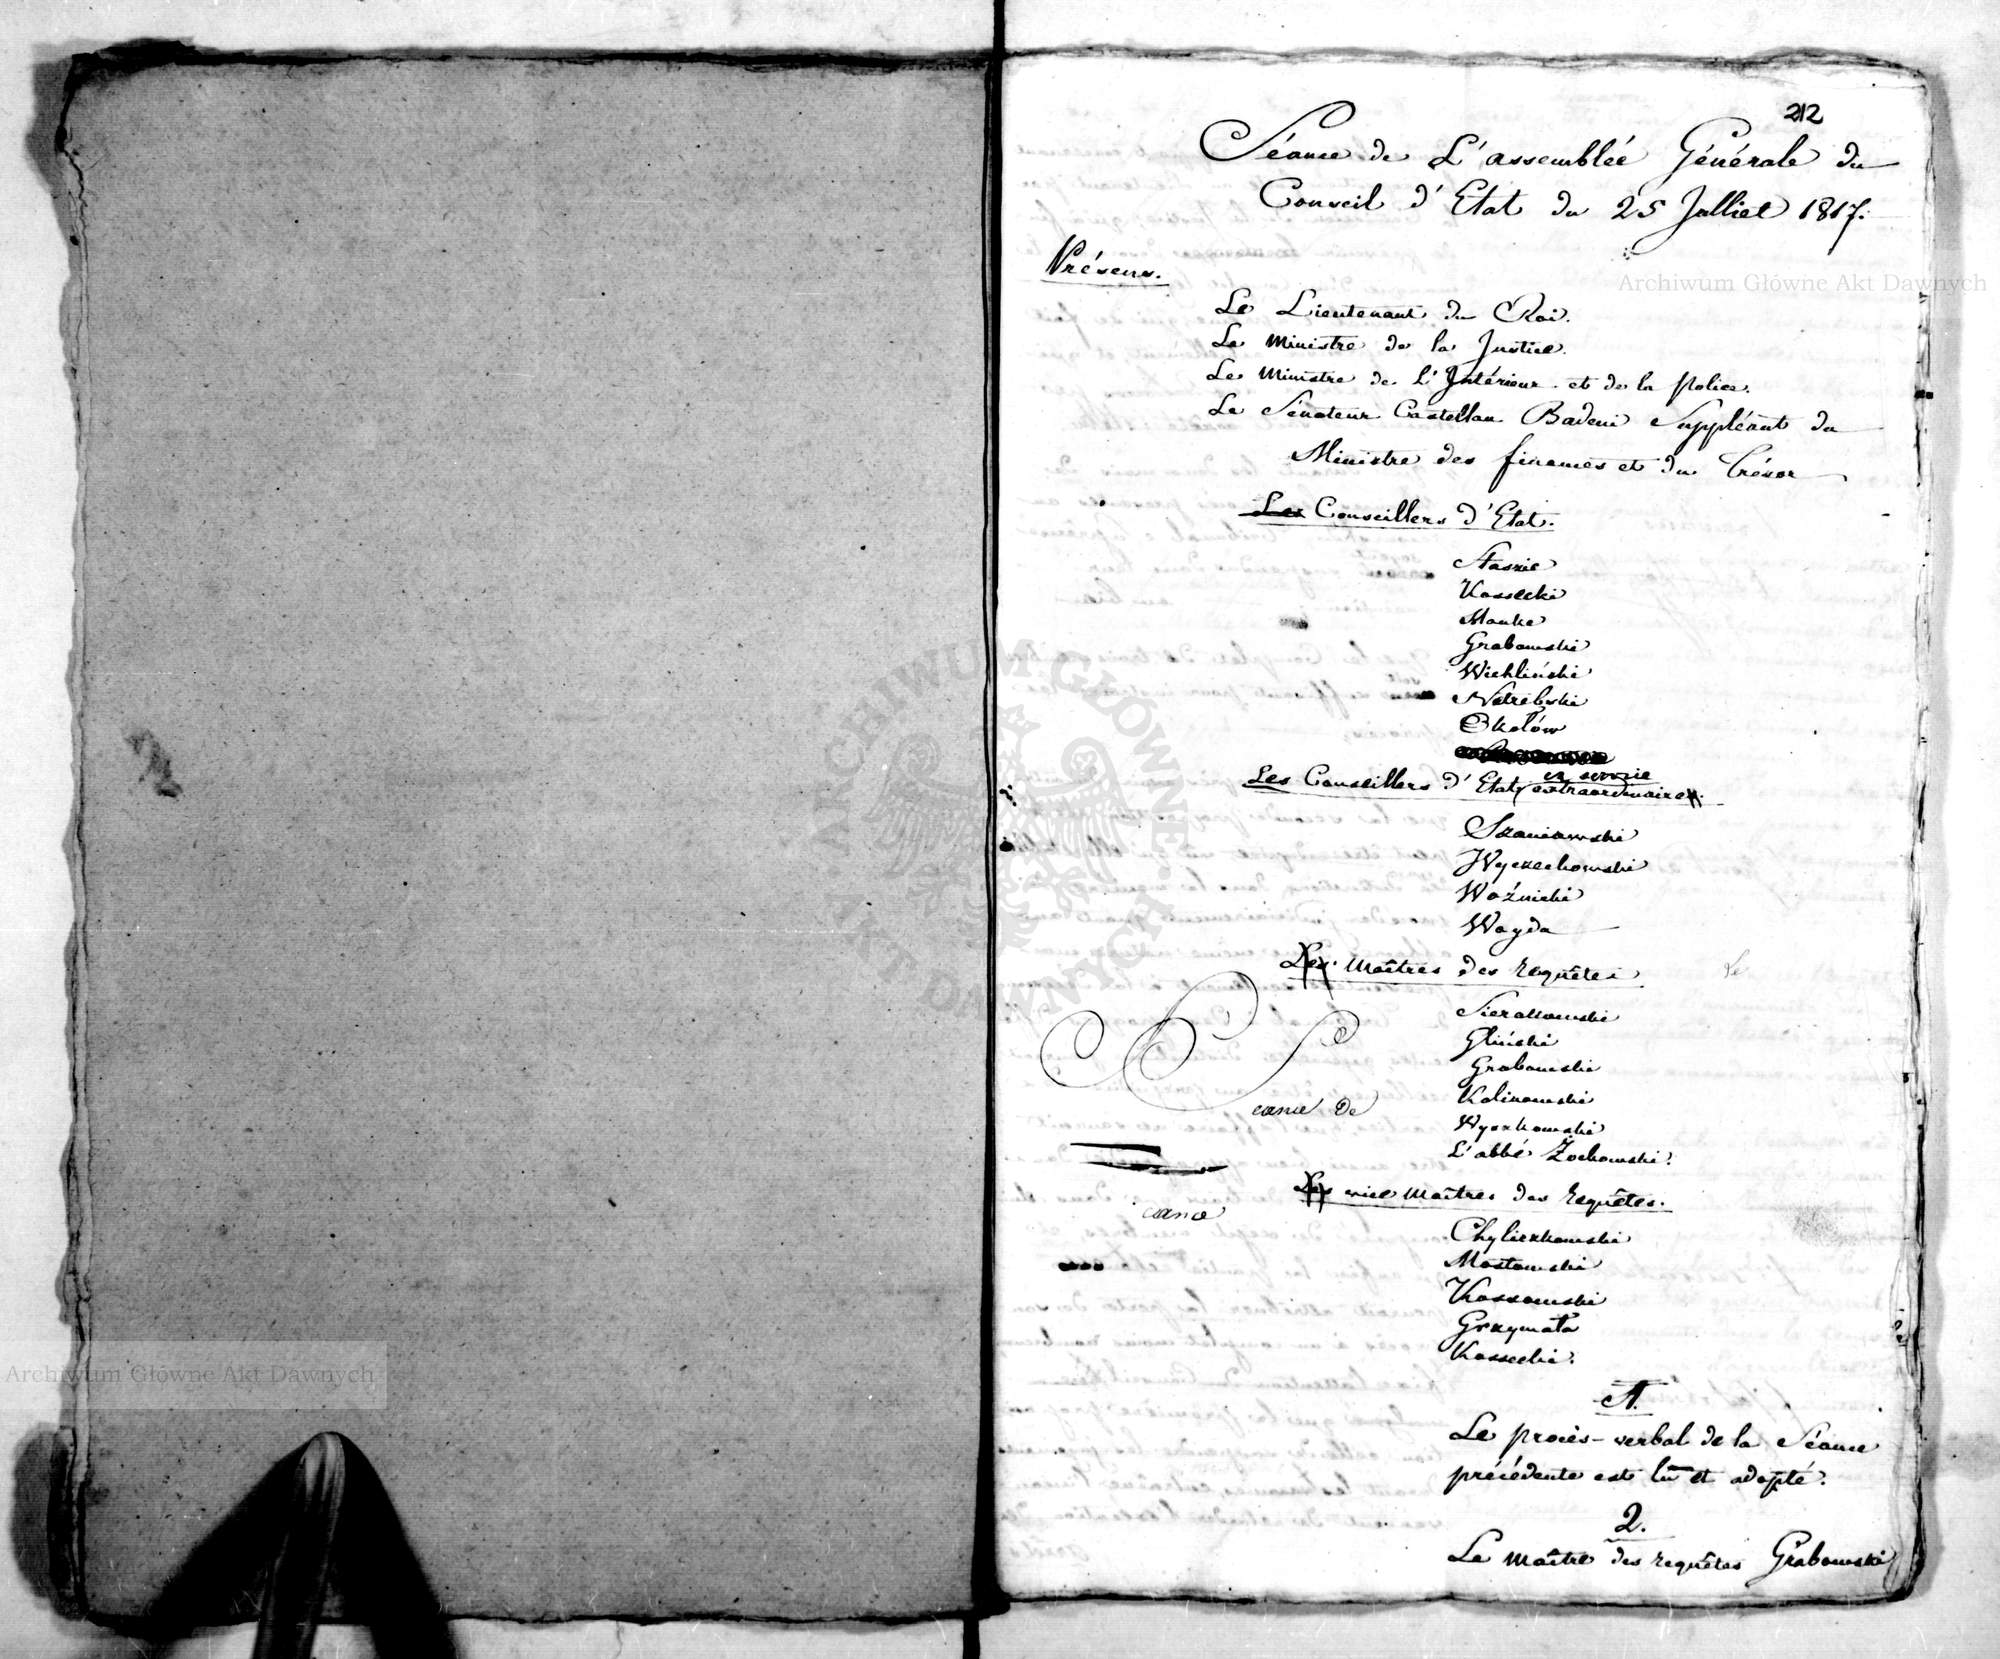 212
Séance de L'assemblée Générale du
Conseil d'Etat du 25 Julliet 1817.
Présens.
Le Lieutenant du Roi.
Le Ministre de la Justice.
Le Ministre de L'Intérieur et de la Police.
Le Sénateur Castellan Badeni Suppléant du
Ministre des finances et du Trésor
Les Conseillers d'Etat.
Staszic
Kossecki
Hauke
Grabowski
Wichliński
Nakielski
Okołów
Les Conseillers d'Etat en servic extraordinaire.
Szaniawski
Wyczechowski
Woźnicki
Woyda
Les Maîtres des requêtes
Le
Sierakowski
Gliński
Grabowski
Kalinowski
Wyszkowski
L'abbé Żochowski.
S
eance de
eance
Les vice Maîtres des requêtes.
Chyliczkowski
Mostowski
Kossowski
Grzymała
Kossecki.
1.
Le procès-verbal de la Séance
précédente est lu et adopté.
2.
Le Maître des requêtes Grabowski
Archiwum Główne Akt Dawnych
Archiwum Główne Akt Dawnych
ARCHIWUM GŁÓWNE AKT DAWNYCH